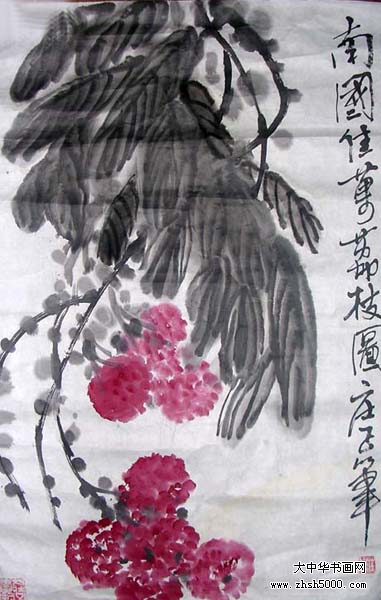 南國佳菓荔枝圖庄筆
大中华书画网
www.zhsh5000.com